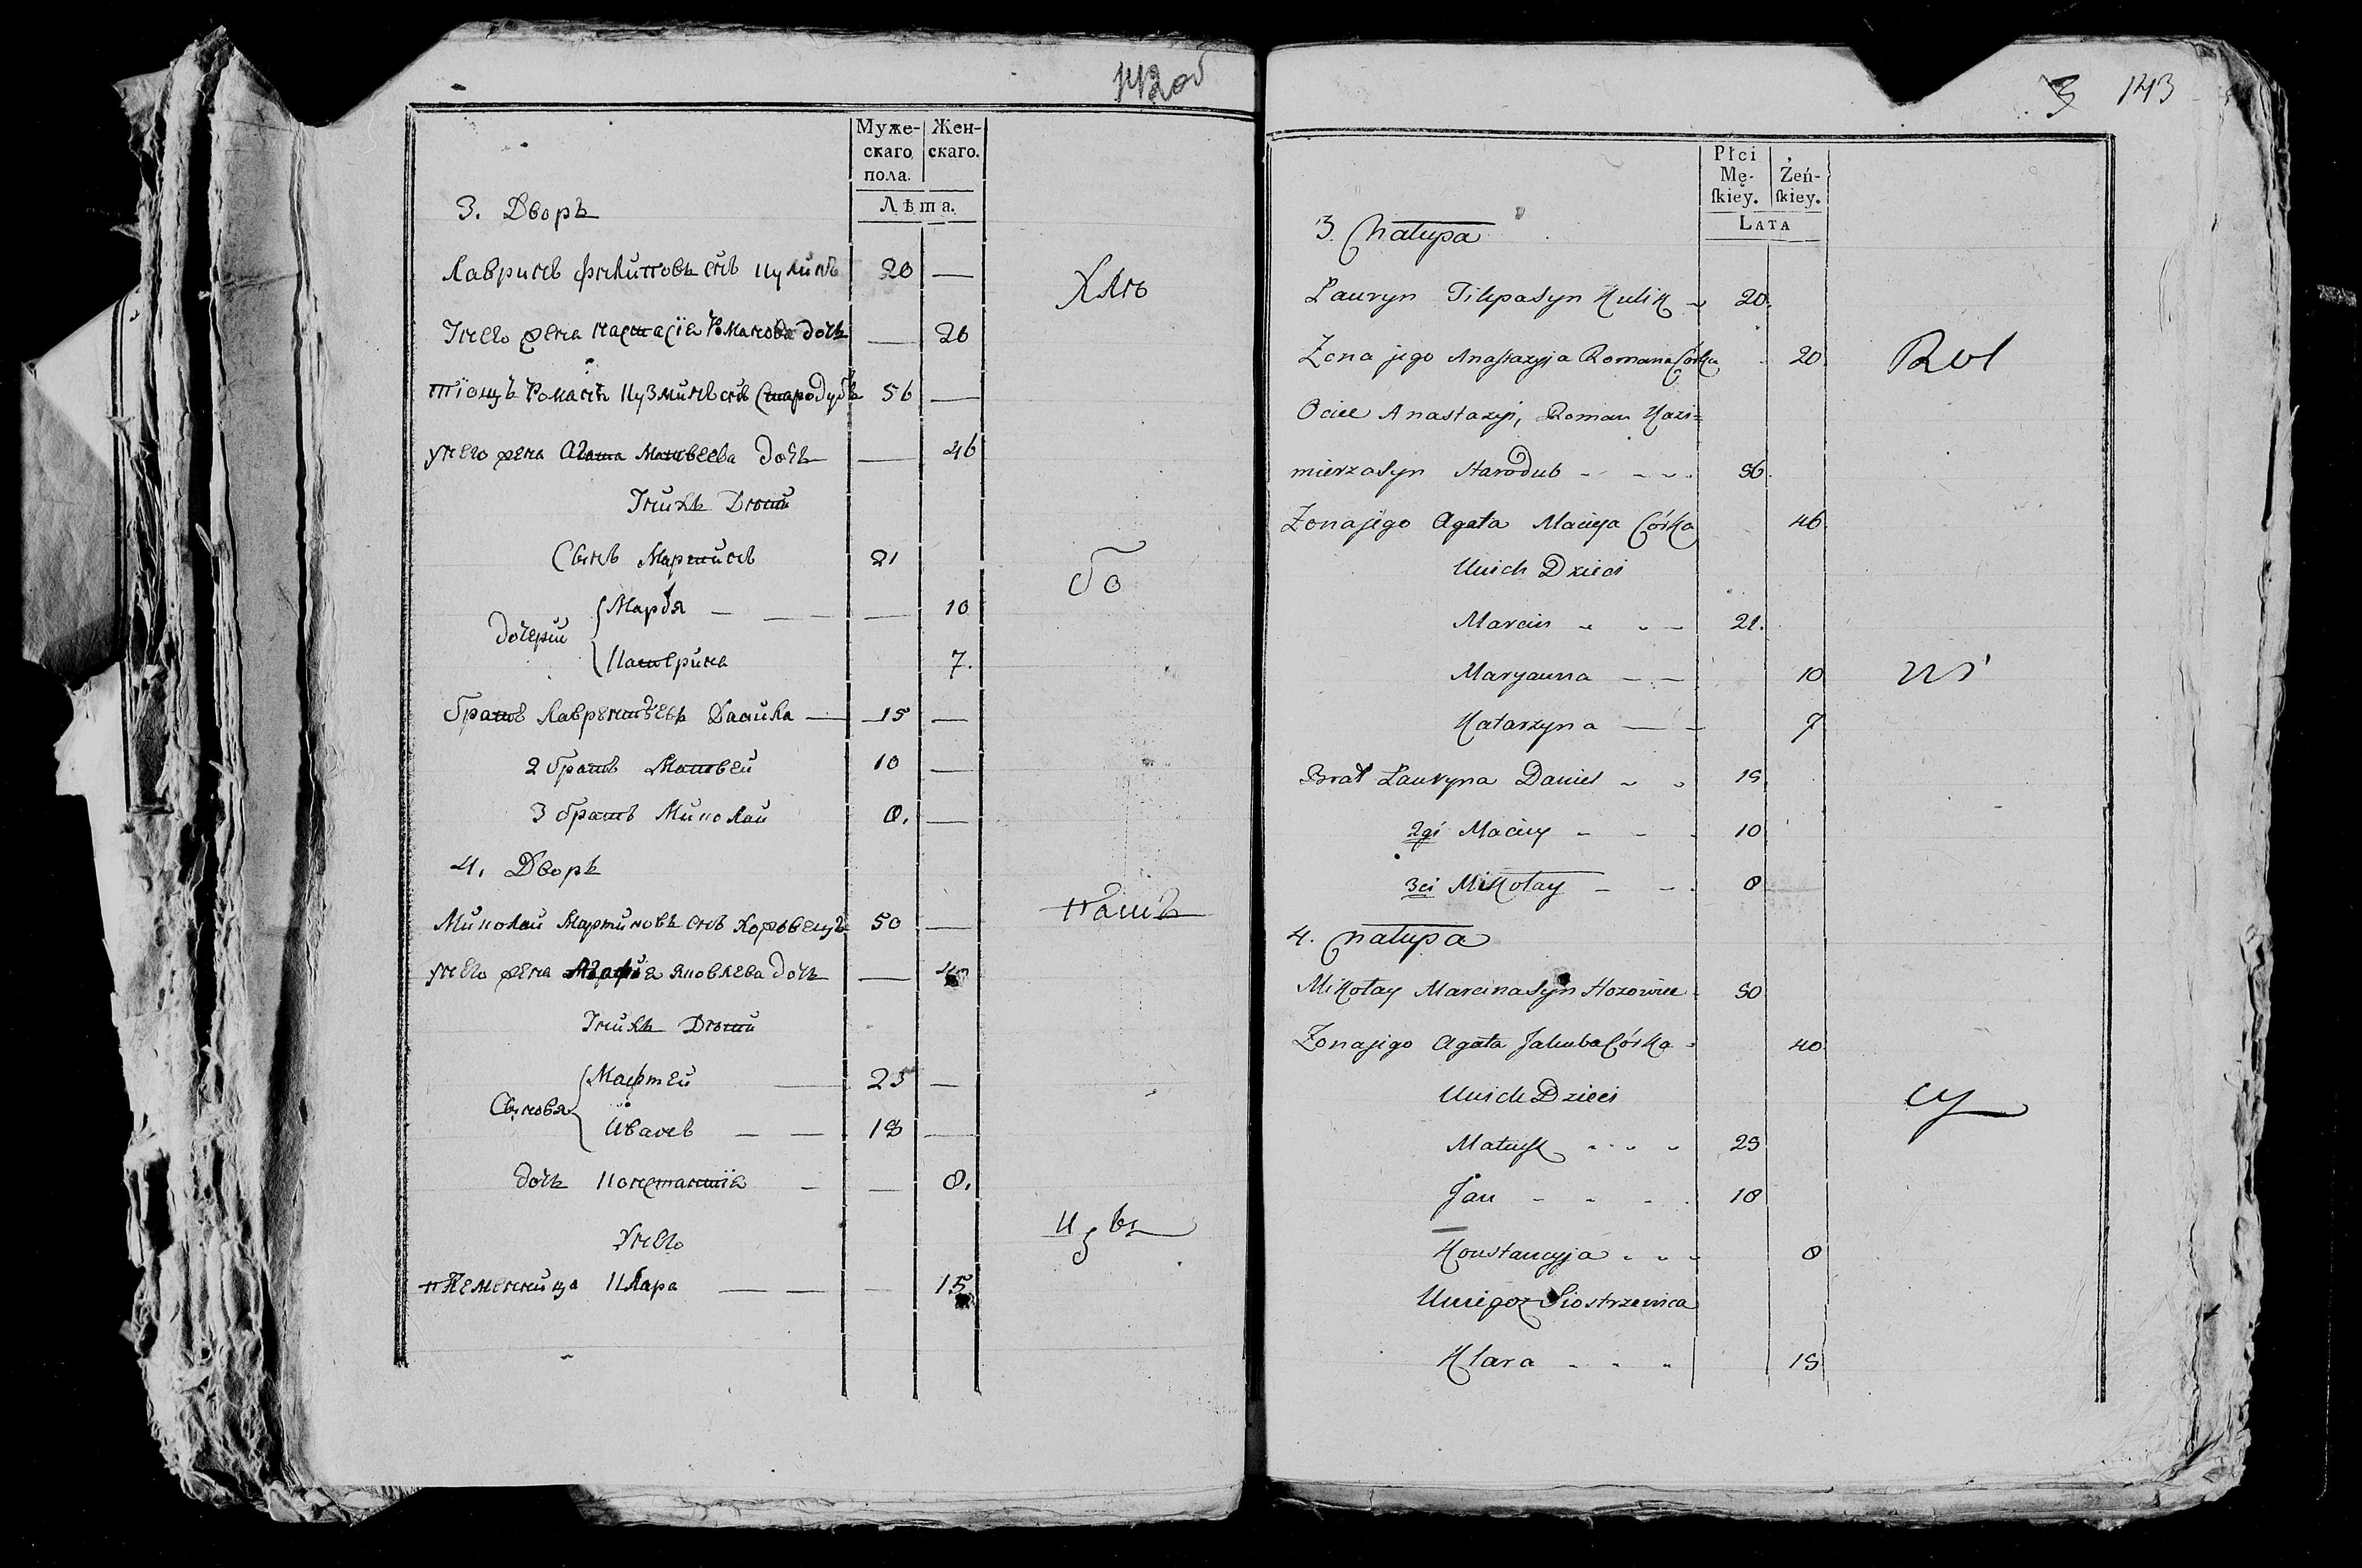 142об
Муже- Жен-
скаго скаго.
пола.
Лѣта.
3. Дворъ
Лавринъ Филиповъ снъ Куликъ 20 —
Унего жена Настасія Романова дочь — 20
тіощъ Романъ Кузминъ снъ Стародубъ 56 —
унего жена Агата Матвеева дочь — 46
Унихъ Дѣти
Сынъ Мартинъ 21
Маръя — — 10
дочери
Катерина 7.
братъ Лаврентьевъ Данила — 15 —
2 братъ Матвей 10 —
3 братъ Миколай 8. —
4. Дворъ
Миколай Мартиновъ снъ 50 —
унего жена Агафія Яковлева дочь — 40
Унихъ Дѣти
Матей — 25 —
Сыновя
Иванъ — — 18 —
дочь Констанція — — 8.
Унего
племенница Клара — — — 15
Хлѣ
бо
паш
цы
3 143
Płci Żeń-
Mę- ſkiey.
ſkiey.
LATA
3. Chałupa
Lauryn Filipa Syn Kulik 20.
Zona jego Anastazyja Romana Córka 20.
Ociec Anastazyi, Roman Kazi=
mierza Syn Starodub - - - - 56.
Zona jego Agata Macieja Córka 46
U nich Dzieci
Marcin - - - 21.
Maryanna — — 10
Katarzyna — - 7
Brat Lauryna Daniel - - 15
2gi Maciey - - - 10
3ci Mikołay - - - 8
4. Chałupa
Mikołay Marcina Syn 50
Zona jego Agata Jakuba Córka - 40
U nich Dzieci
Mateusz - - - - 25
Jan - - - - 18
Konstancyja - - - 8
U niego Siostrzenica
Klara - - - 15
Rol
ni
cy